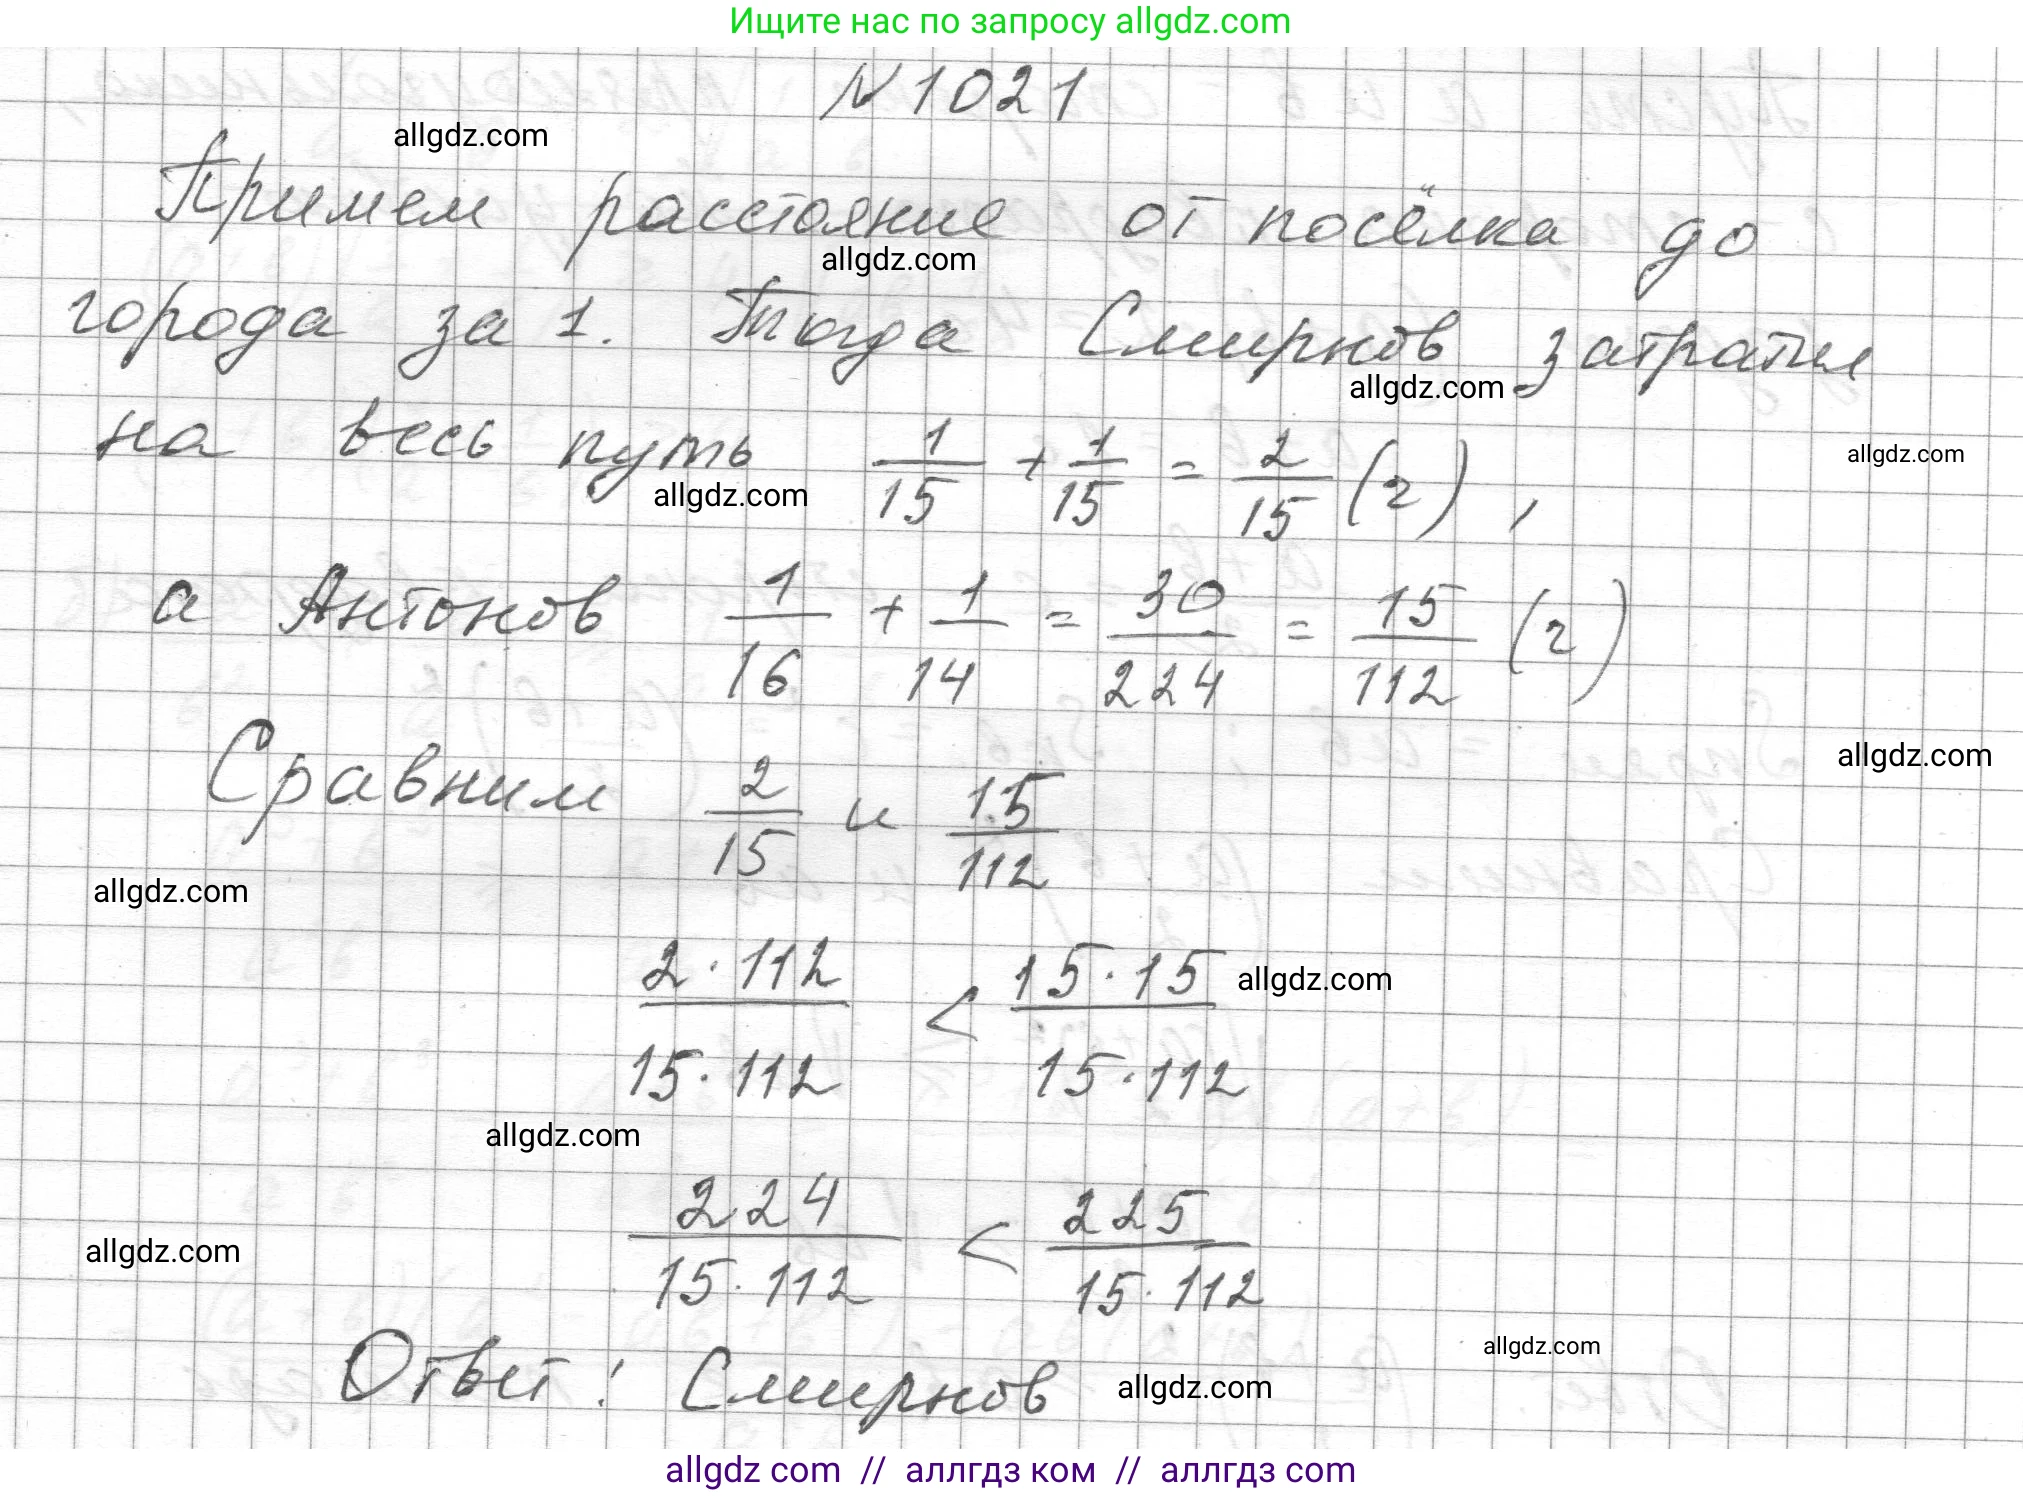 Ищите нас по запросу allgdz.com
N 1021
allgdz.com
Примем расстояние от посёлка до
allgdz.com
города за 1. Тогда Смирнов затратил
allgdz.com
на весь путь 1/15 + 1/15 = 2/15 (ч),
allgdz.com
allgdz.com
а Антонов 1/16 + 1/14 = 30/224 = 15/112 (ч)
Сравним 2/15 и 15/112
allgdz.com
allgdz.com
2·112/15·112 < 15·15/15·112
allgdz.com
allgdz.com
224/15·112 < 225/15·112
allgdz.com
Ответ: Смирнов
allgdz.com
allgdz.com
allgdz com // аллгдз ком // аллгдз com